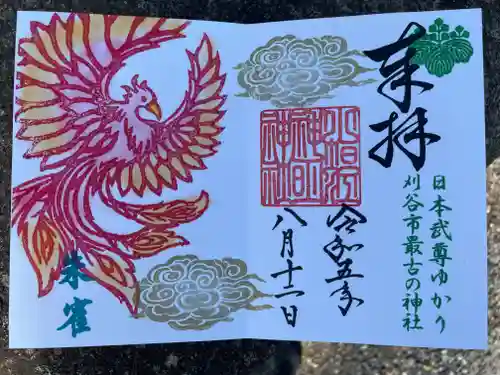 日本武尊ゆかり
刈谷市最古の神社
奉拝
令和五年
八月十二日
朱雀